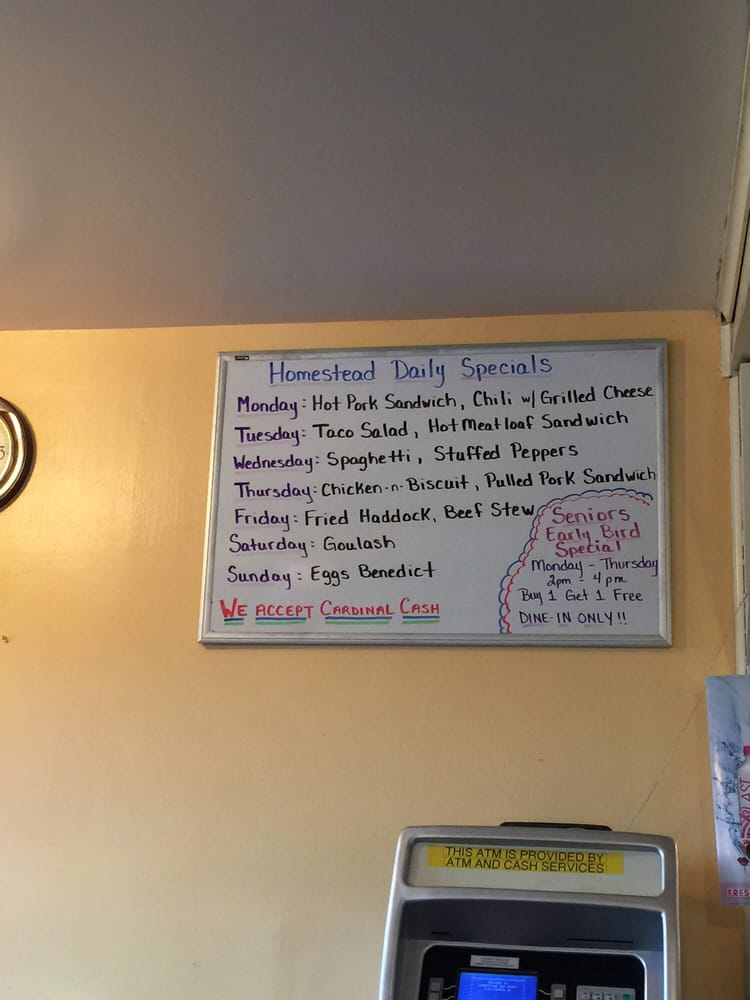 Homestead Daily Specials
Monday: Hot Pork Sandwich, Chili w/ Grilled Cheese
Tuesday: Taco Salad, Hot Meatloaf Sandwich
Wednesday: Spaghetti, Stuffed Peppers
Thursday: Chicken-n-Biscuit, Pulled Pork Sandwich
Friday: Fried Haddock, Beef Stew
Saturday: Goulash
Sunday: Eggs Benedict
WE ACCEPT CARDINAL CASH
Seniors
Early Bird
Special
Monday - Thursday
2pm - 4pm
Buy 1 Get 1 Free
DINE-IN ONLY!!
THIS ATM IS PROVIDED BY
ATM AND CASH SERVICES